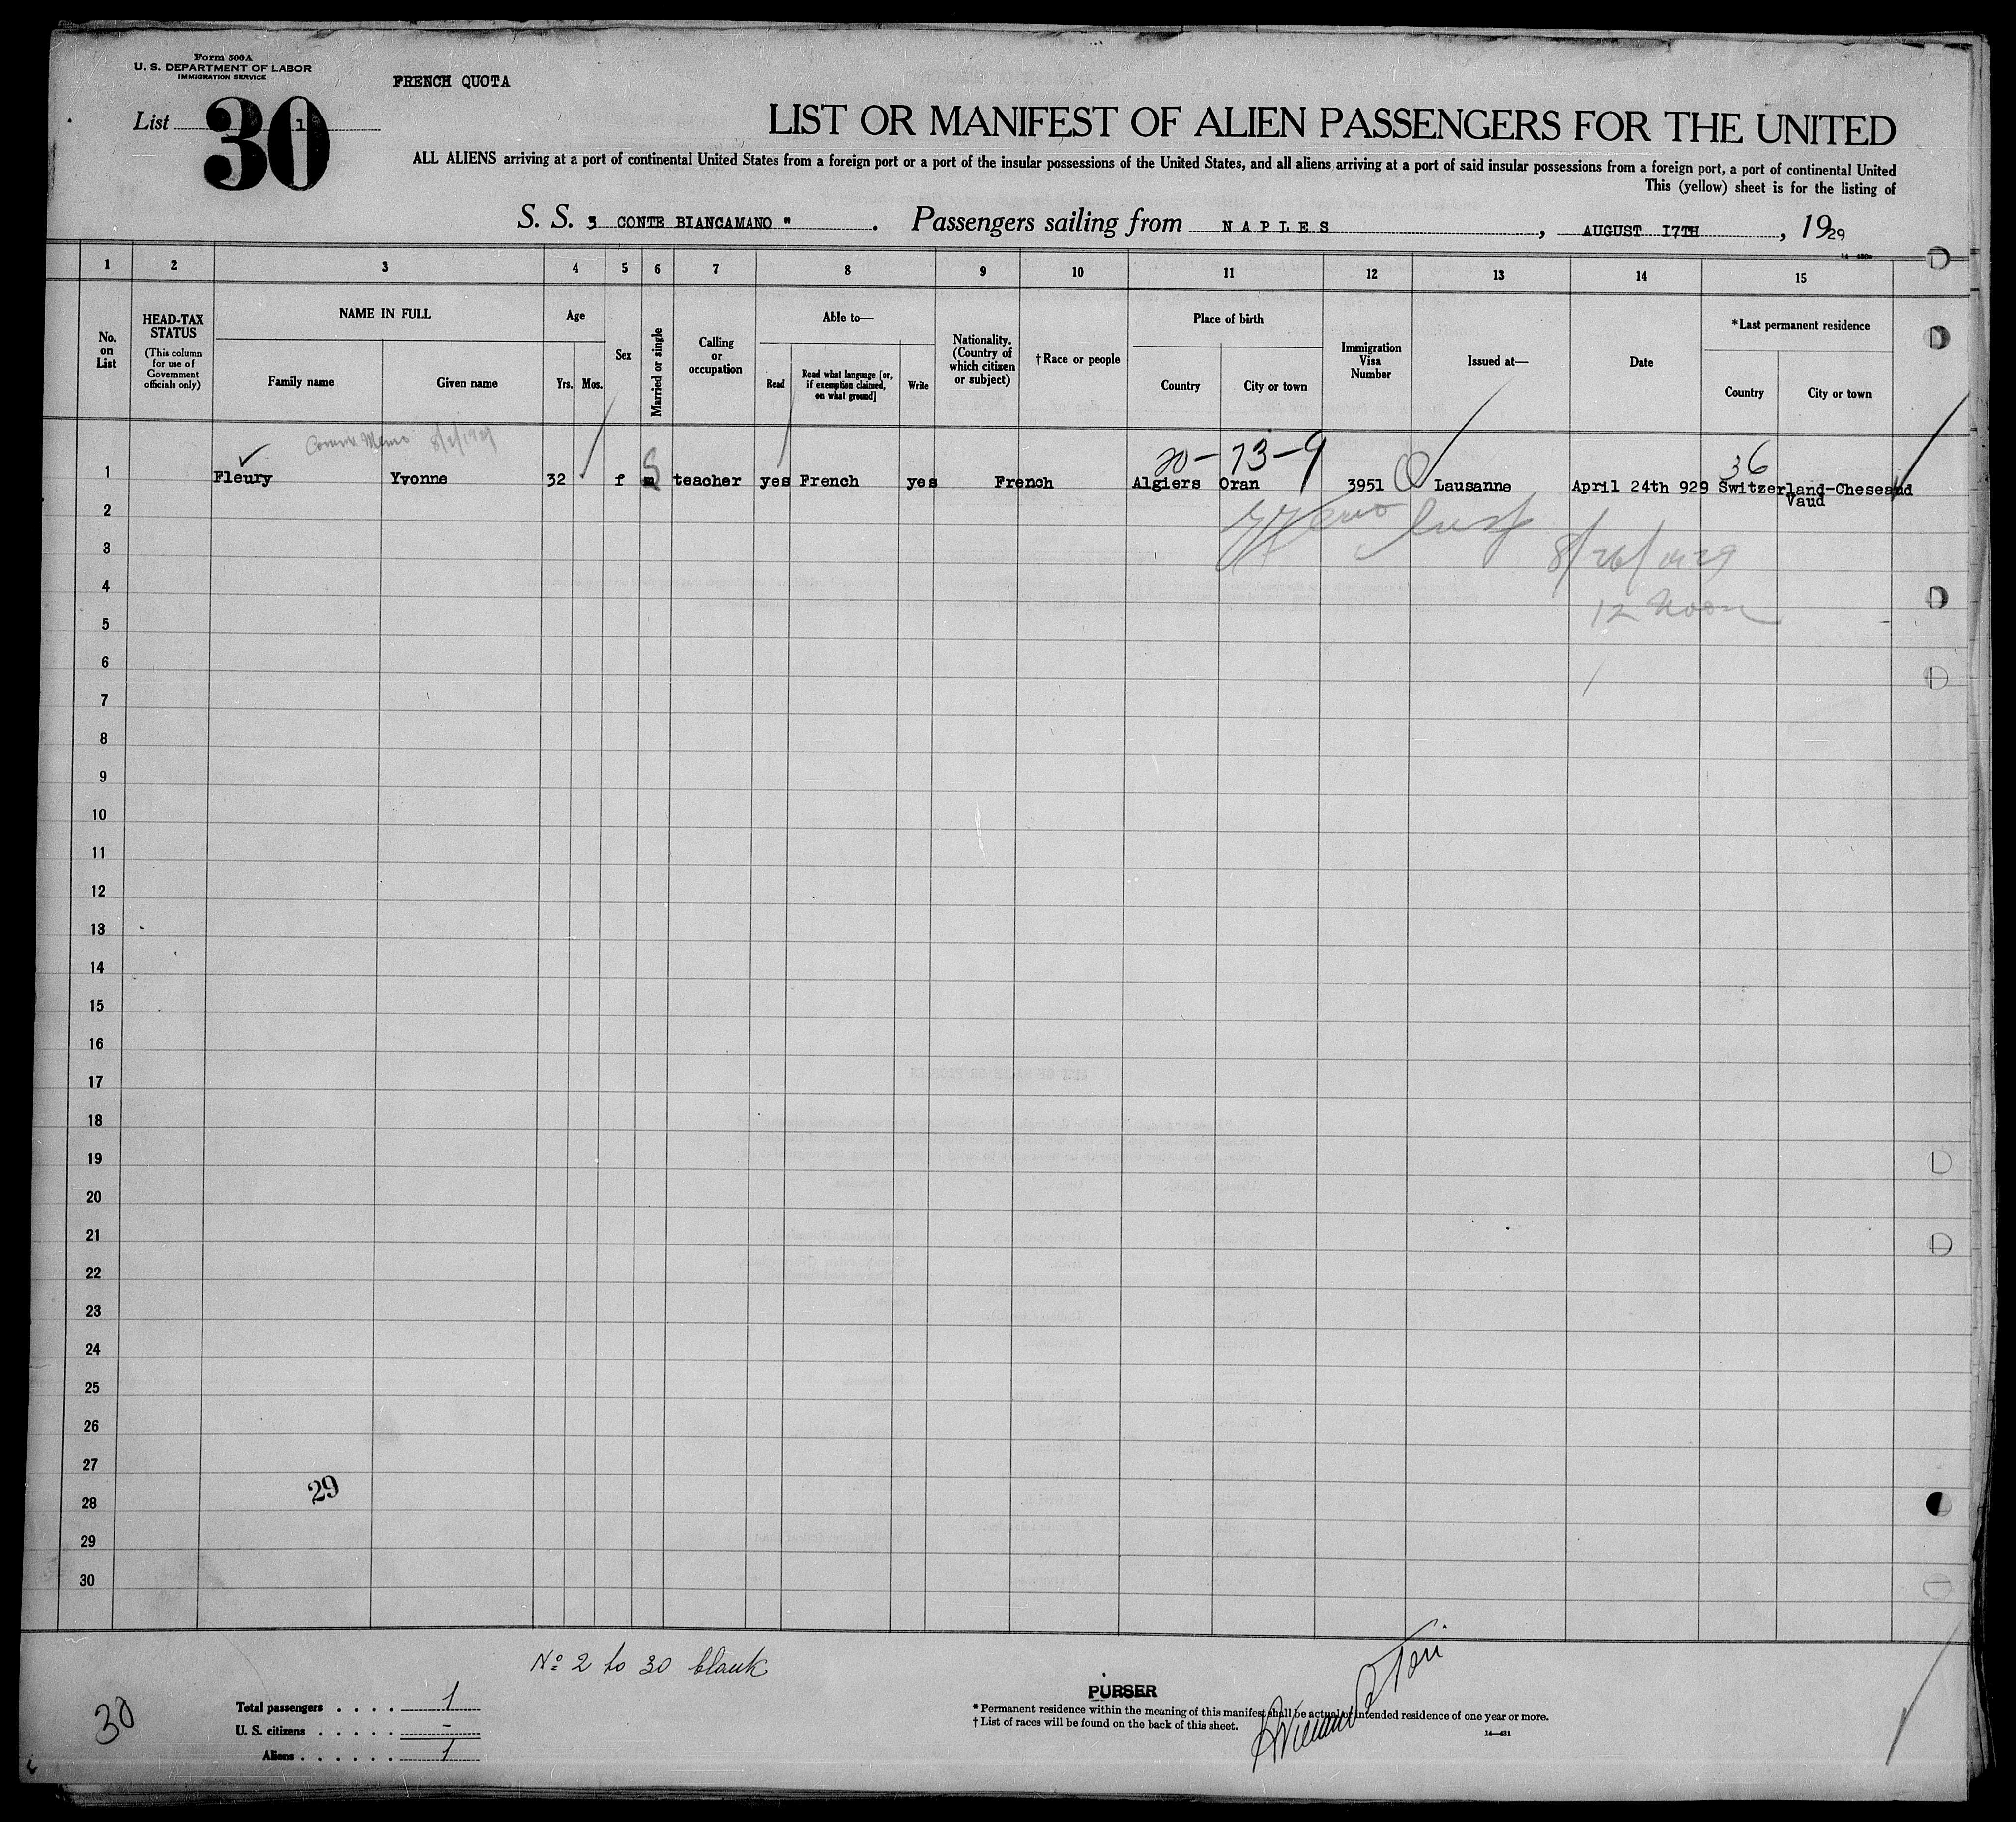 Form 500A
U. S. DEPARTMENT OF LABOR
IMMIGRATION SERVICE
FRENCH QUOTA
List 1
30
LIST OR MANIFEST OF ALIEN PASSENGERS FOR THE UNITED
ALL ALIENS arriving at a port of continental United States from a foreign port or a port of the insular possessions of the United States, and all aliens arriving at a port of said insular possessions from a foreign port, a port of continental United
This (yellow) sheet is for the listing of
S. S. CONTE BIANCAMANO " . Passengers sailing from NAPLES , AUGUST I7TH , 1929
1 2 3 4 5 6 7 8 9 10 11 12 13 14 15
No. on List
HEAD-TAX STATUS
(This column for use of Government officials only)
NAME IN FULL
Family name
Given name
Age
Yrs.
Mos.
Sex
Married or single
Calling or occupation
Able to—
Read
Read what language [or, if exemption claimed, on what ground]
Write
Nationality. (Country of which citizen or subject)
†Race or people
Place of birth
Country
City or town
Immigration Visa Number
Issued at—
Date
*Last permanent residence
Country
City or town
8/2/1929
20-73-9
36
1 Fleury Yvonne 32 f m S teacher yes French yes French Algiers Oran 3951 Lausanne April 24th 929 Switzerland-Cheseaud
Vaud
2
3
8/26/1929
4
12 Noon
5
6
7
8
9
10
11
12
13
14
15
16
17
18
19
20
21
22
23
24
25
26
27
29
28
29
30
No 2 to 30 blank
30
Total passengers . . . . 1
U. S. citizens . . . . . -
Aliens . . . . . . 1
PURSER
* Permanent residence within the meaning of this manifest shall be actual or intended residence of one year or more.
† List of races will be found on the back of this sheet.
14—431